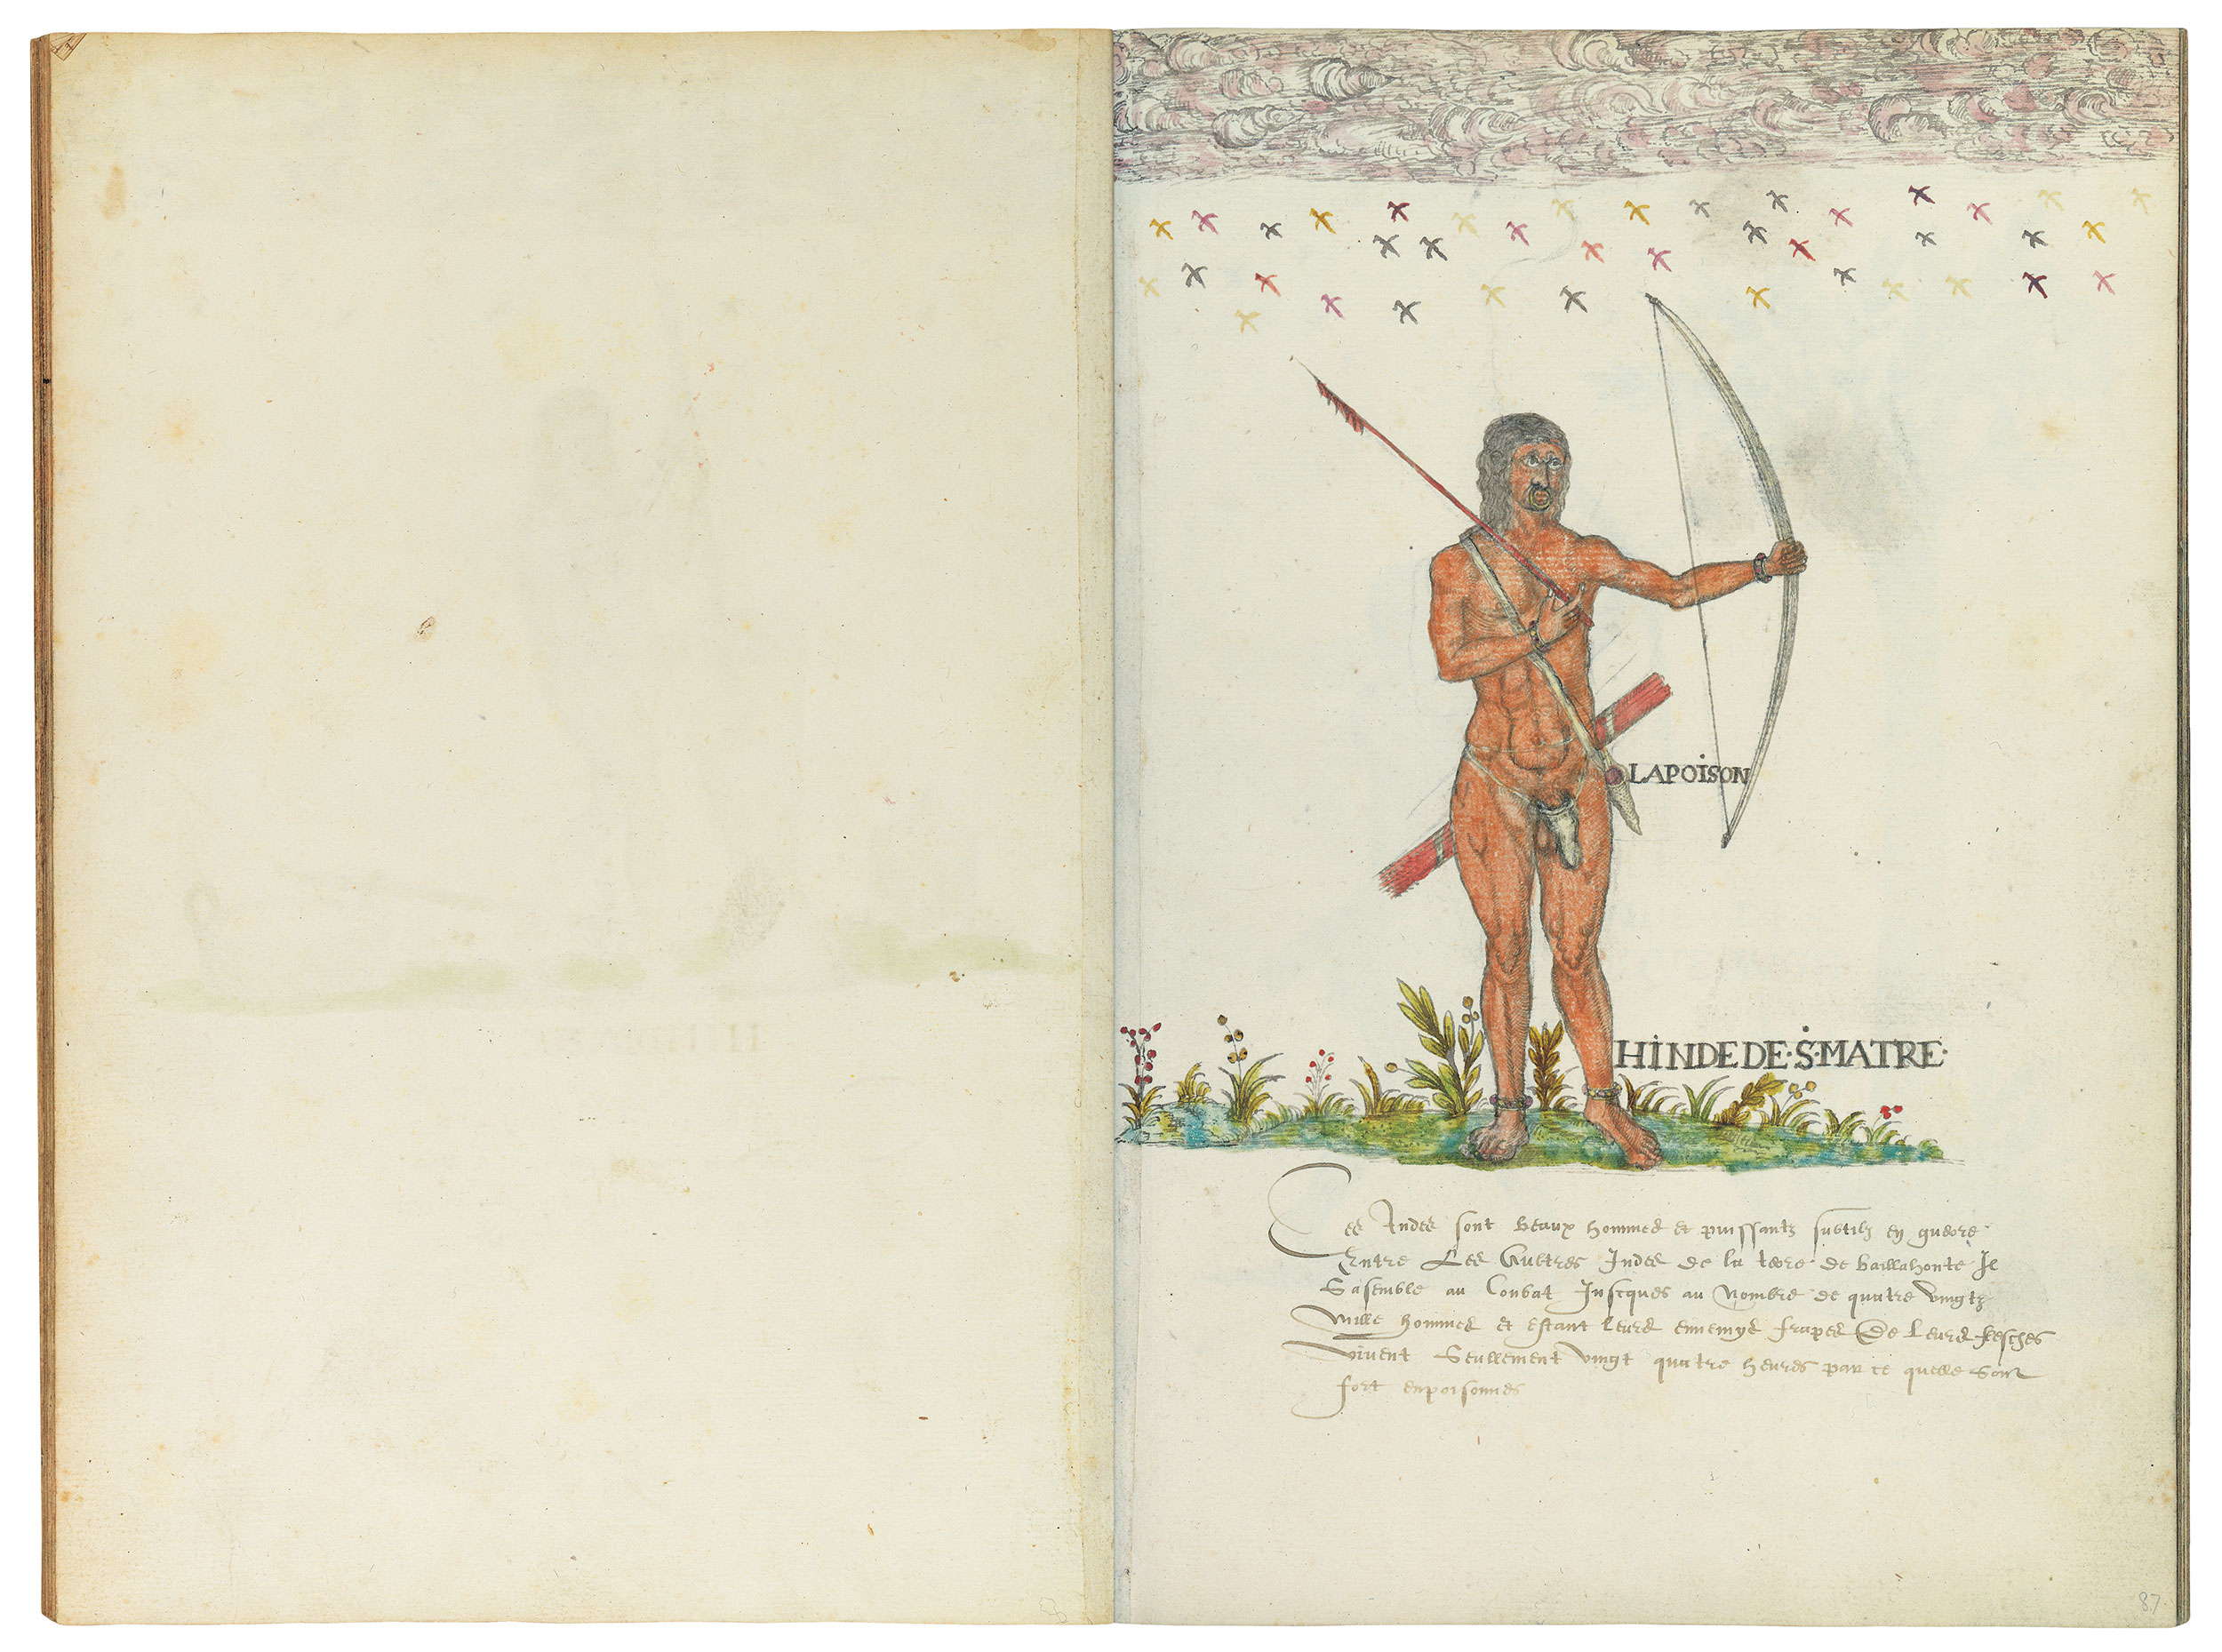 LAPOISON
HINDE DE·S·MATRE·
Ces Indes sont beaux hommes et puissantz subtilz en guerre
Entre Les Aultres Indes de la terre de baillahonte Il
Sasemble au Conbat Juscques au Nombre de quatre vingtz
mille hommes et estant leurs ennemys frapes De leurs flesches
vivent Seullement vingt quatre heures par ce quelle Sont
fort enpoisonnes
87